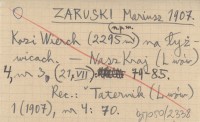 ZARUSKI Mariusz 1907.
Kozi Wierch (2295 m) na łyż
n.p.m.
wicach. – Nasz Kraj (Lwów)
4, nr 3, (21, VII): 79-85.
Rec.: Taternik (Lwów)
1 (1907), nr 4: 70.
95050/2338